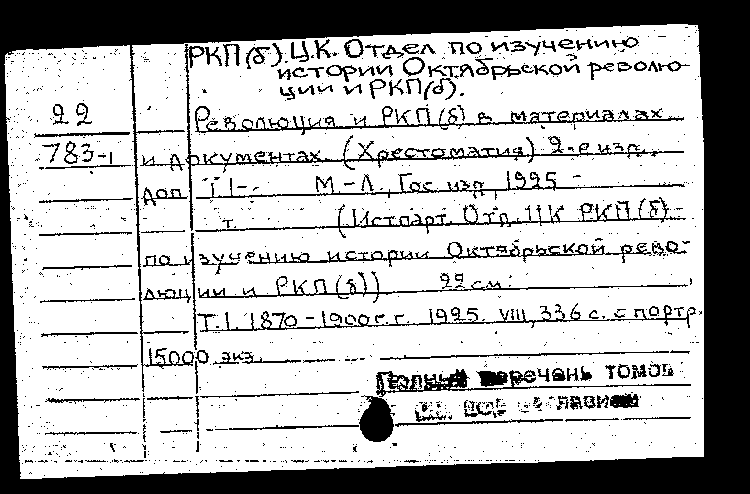 РКП(б). Ц.К. Отдел по изучению
истории Октябрьской револю-
ции и РКП(б).
22
Революция и РКП(б) в материалах
783-1
и документах. (Хрестоматия) 2-е изд.,
доп. Т.1-. М.-Л., Гос. изд., 1925 -
т. (Истпарт. Отд. ЦК РКП(б)
по изучению истории Октябрьской рево-
люции и РКП(б)) 22 см.
Т.1. 1870-1900г.г. 1925. VIII, 336 с. с портр.
15000 экз.
Полный перечень томов
см. под заглавием